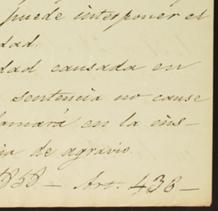 puede interponer el
dad.
dad causada en
sentencia no cause
tomará en la ins-
de agravio.
1858 - Art. 438 -